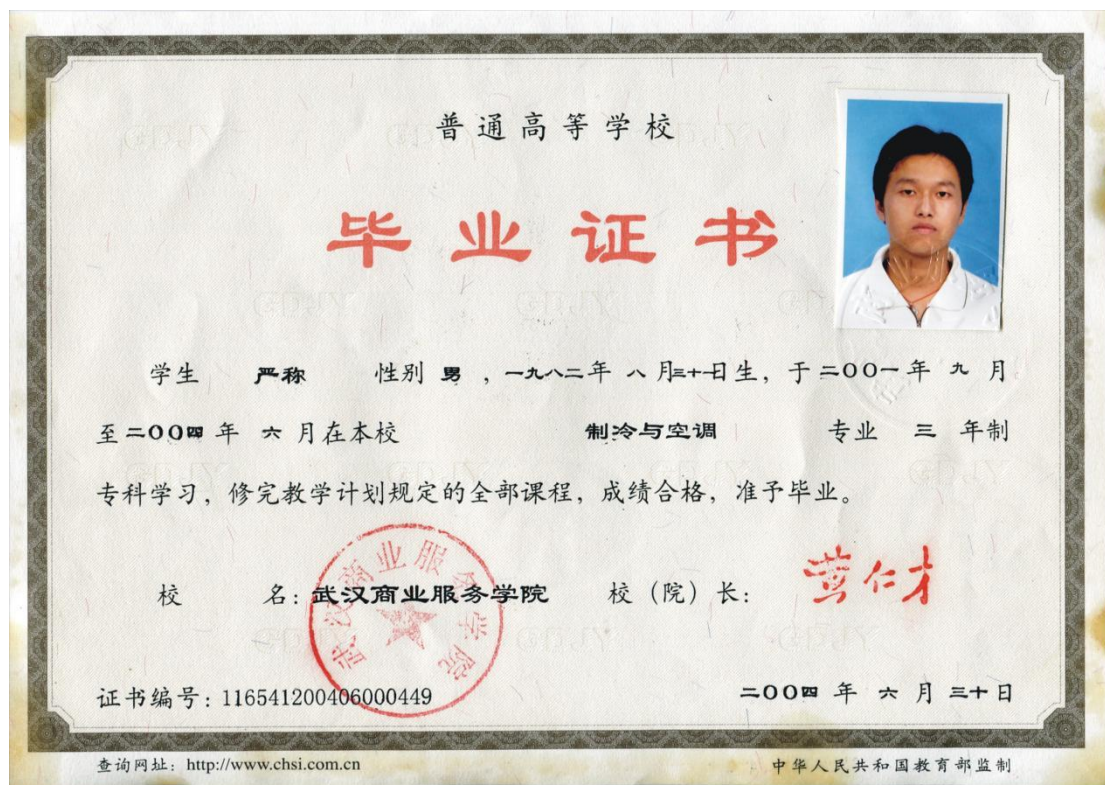 普通高等学校
毕业证书
学生 严称 性别 男 , 一九八二年 八 月三十日生, 于二00一年 九 月
至二00四 年 六 月在本校 制冷与空调 专业 三 年制
专科学习, 修完教学计划规定的全部课程, 成绩合格, 准予毕业。
校 名: 武汉商业服务学院 校 (院) 长:
武汉商业服务学院
证书编号: 116541200406000449 二00四 年 六 月 三十日
查询网址: http://www.chsi.com.cn 中华人民共和国教育部监制